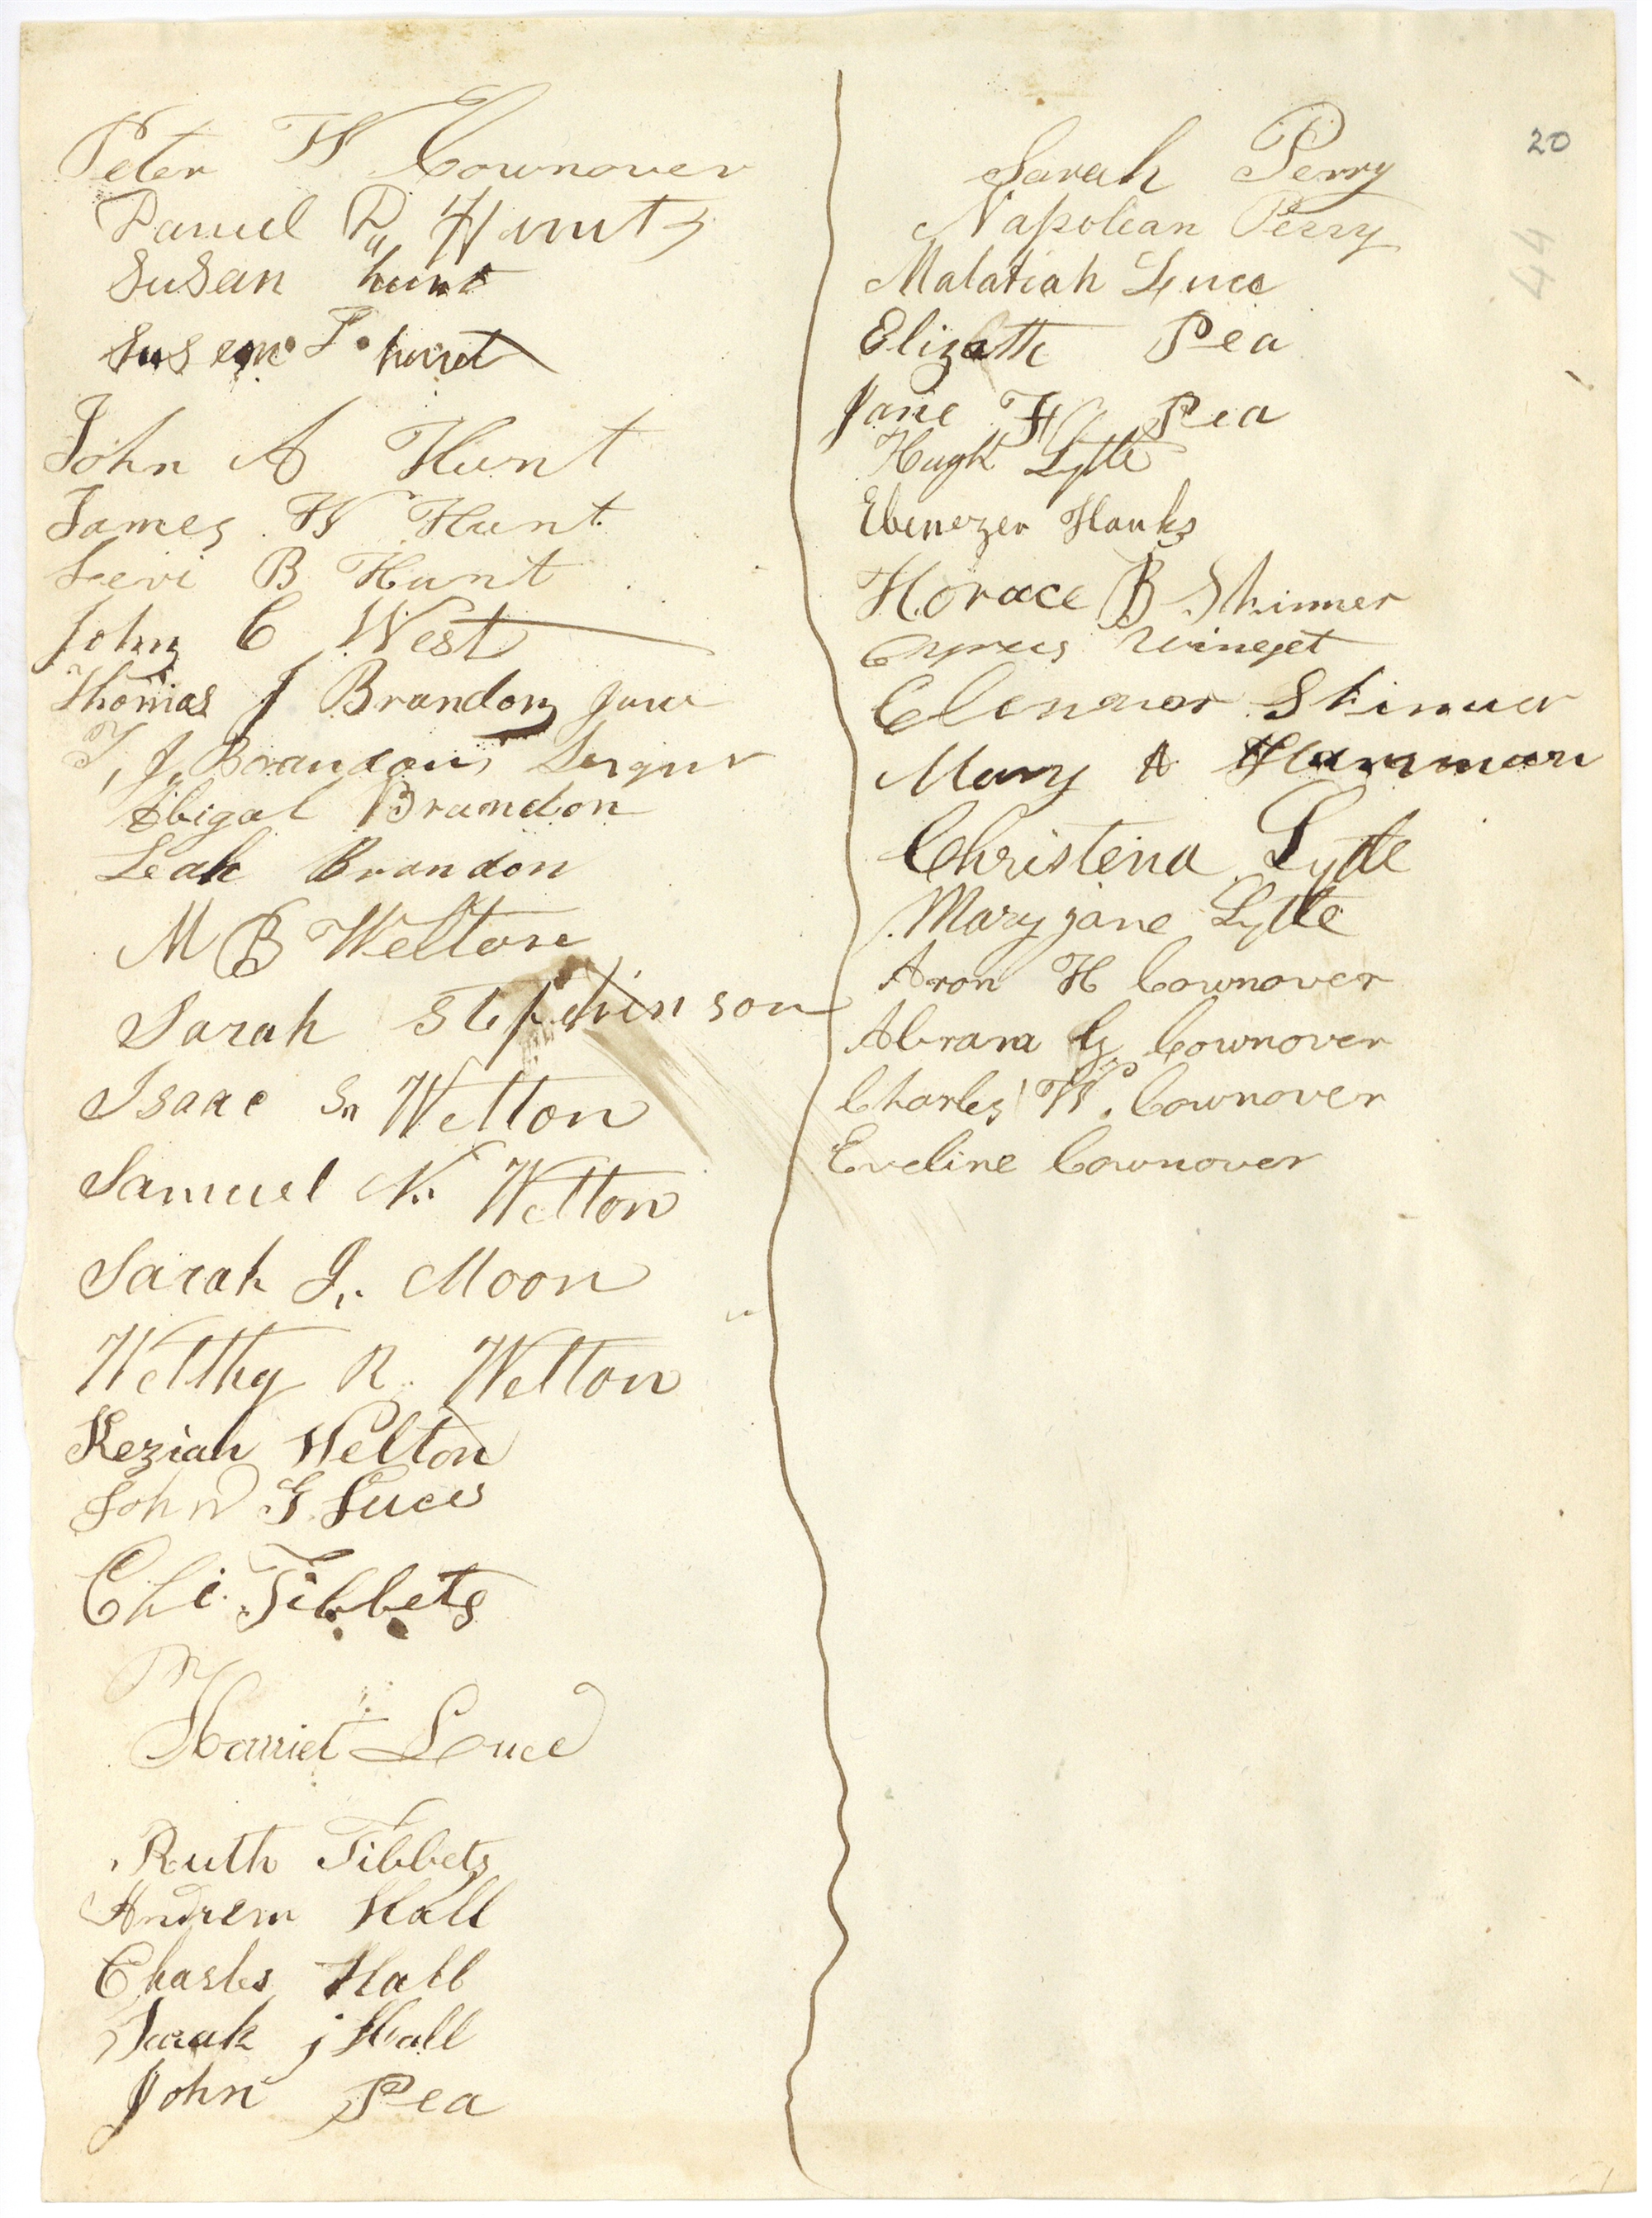 Peter W Cownover
Daniel D. Hunt
Susan hunt
Susan hunt
John A Hunt
James W Hunt
Levi B Hunt
John C West
Thomas J Brandon
T, J, Brandon,
Abigal Brandon
Leah Brandon
M B Welton
Sarah Stephinson
Isaac Welton
Samuel N. Welton
Sarah J. Moon
Welthy R. Welton
Keziah Welton
John G. Luce
Tibbets
Harriet Luce
Ruth Tibbets
Andrew Hall
Charles Hall
Sarah j Hall
John Pea
20
44
Sarah Perry
Napolean Perry
Malatiah Luce
Pea
Jane Pea
Hugh Lytle
Ebenezer Hanks
Horace B Skinner
Winget
Elennor Skinner
Mary A Harriman
Christena Lytle
Mary jane Lytle
Aron H Cownover
Abram G Cownover
Charles W. Cownover
Eveline Cownover